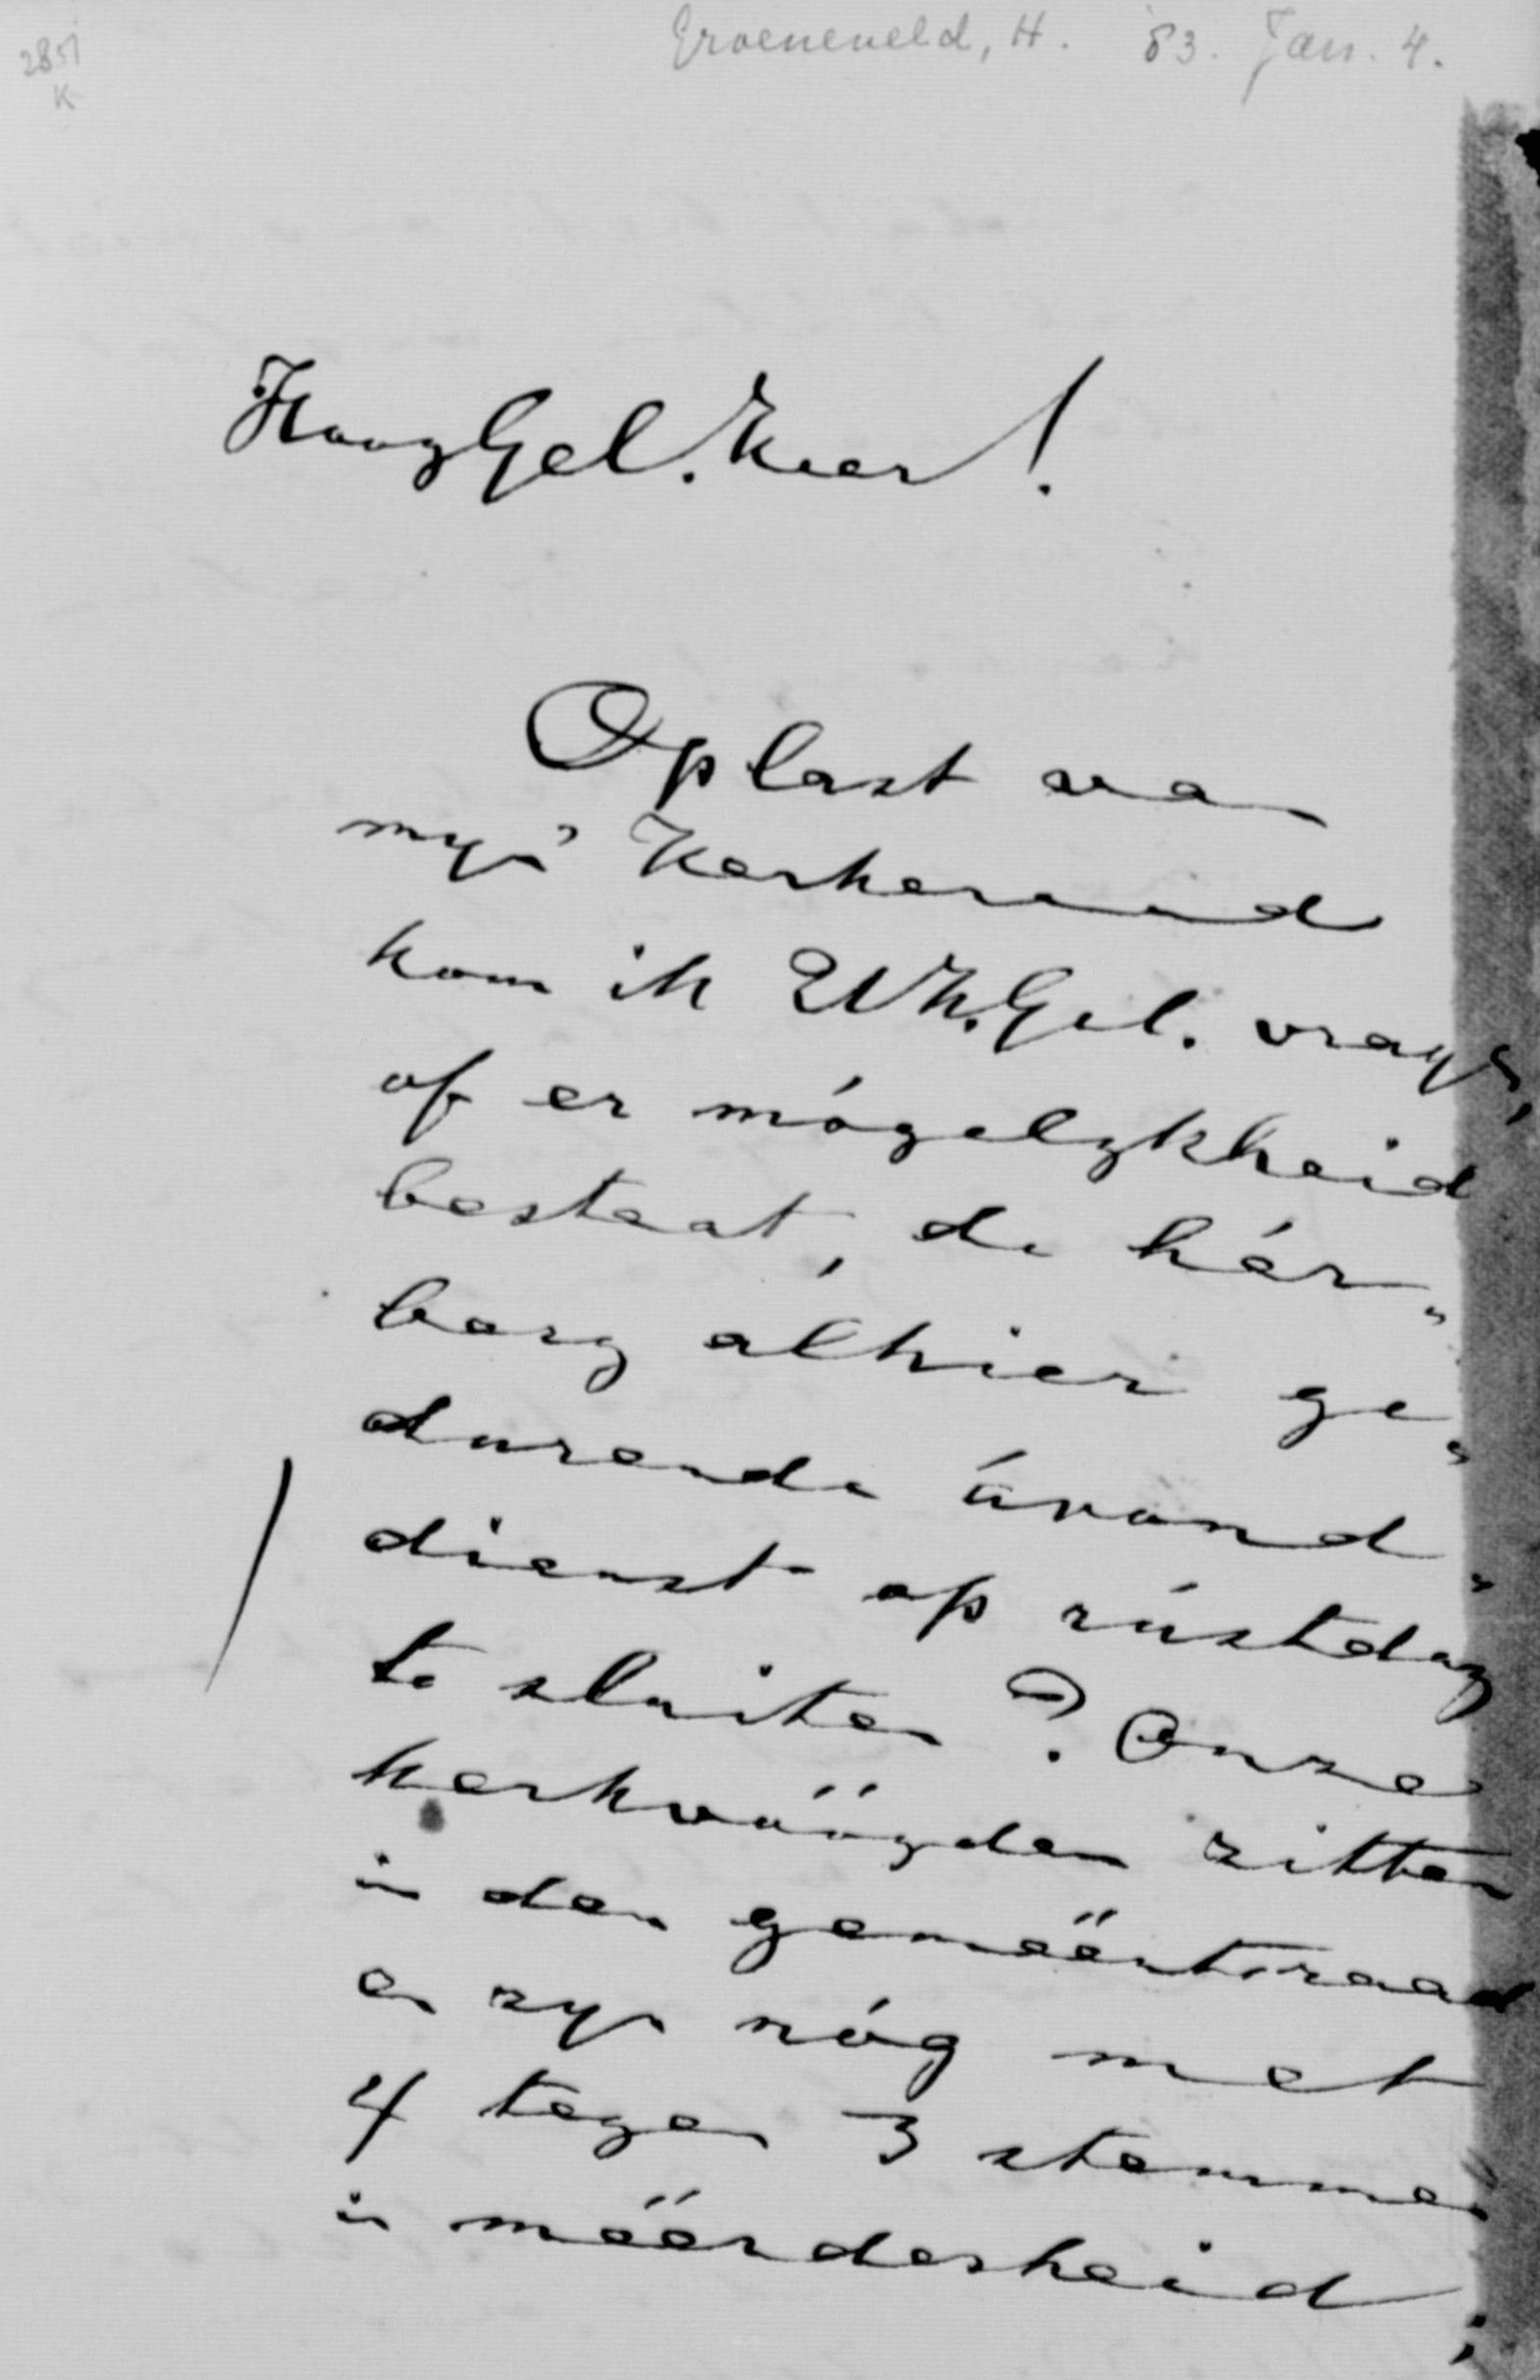 Groeneveld, H. '83. Jan. 4.
2851
K
HoogGel. Heer!
Op last van
mijn Kerkeraad
kom ik UwH.Gel. vragen,
of er mógelykheid
bestaat, de hér„
berg alhier ge„
durende ávond„
dienst op rústdag
te sluiten? Onze
kerkvóógden zitten
in den geméénteraad
en zyn nóg met
4 tegen 3 stemmen
in méérderheid;